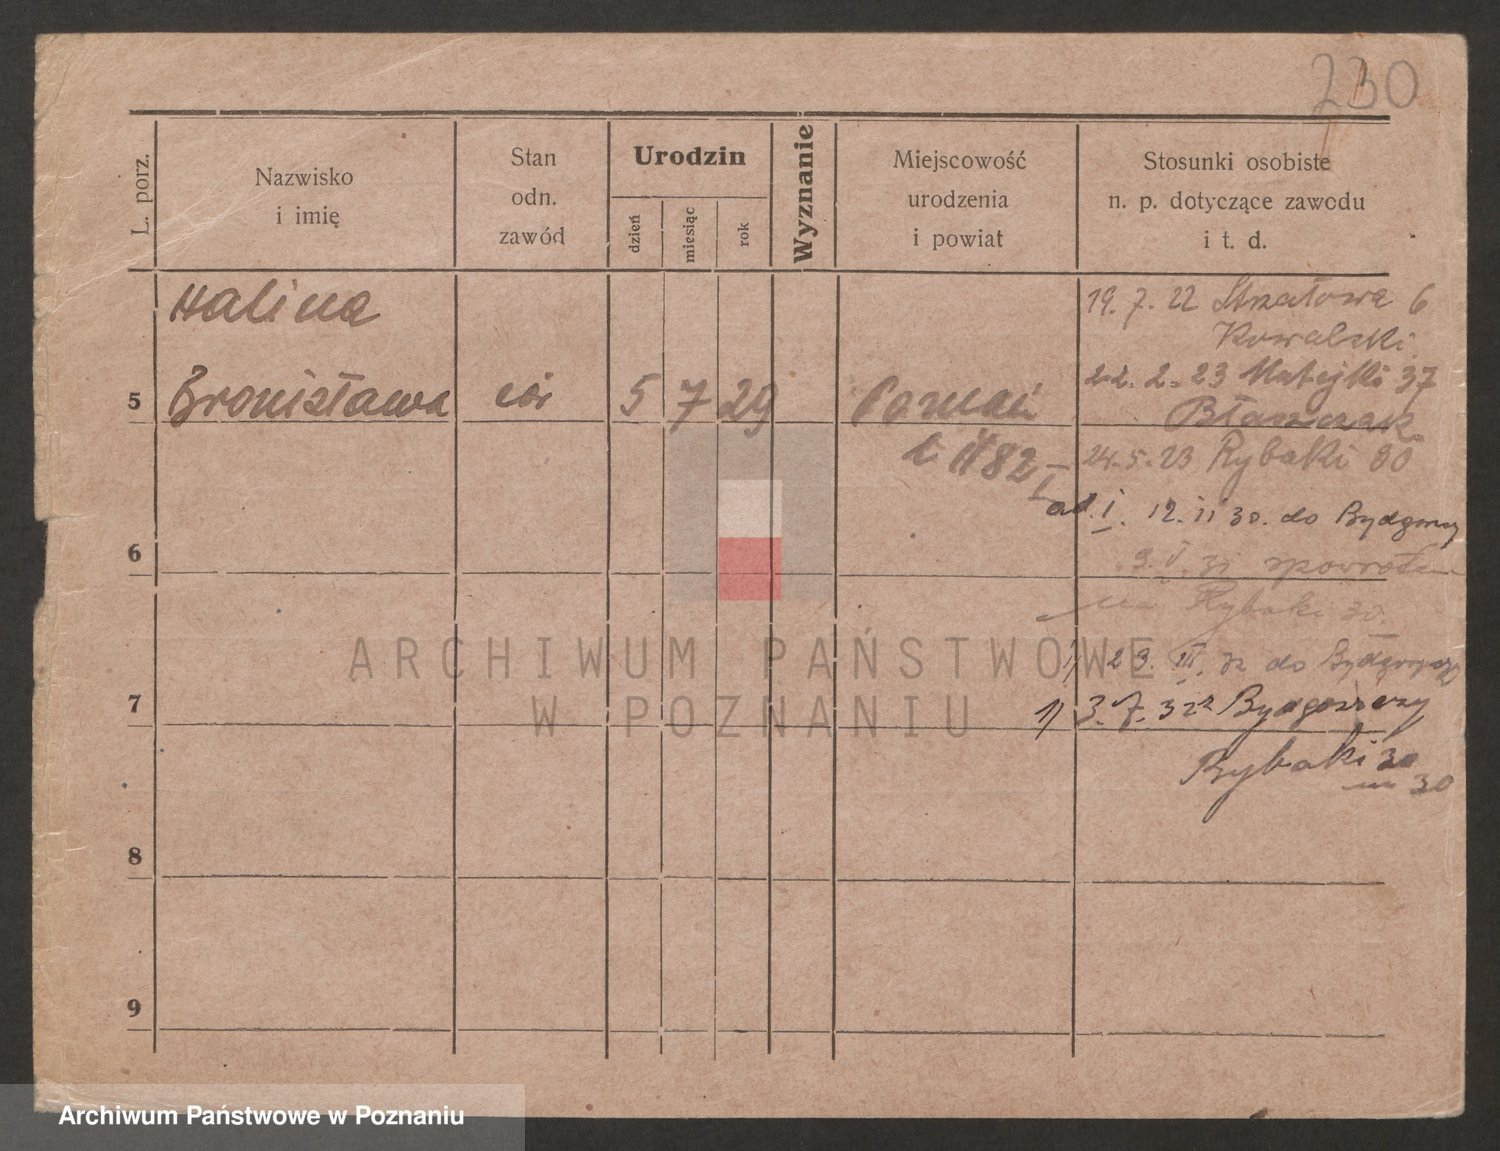 230
L. porz.
Nazwisko
i imię
Stan
odn.
zawód
Urodzin
dzień
miesiąc
rok
Wyznanie
Miejscowość
urodzenia
i powiat
Stosunki osobiste
n. p. dotyczące zawodu
i t. d.
Halina
5 Bronisława 5 7 29 Poznań
19. 7. 22 Strzałowa 6
Kowalski
22. 2. 23 Matejki 37
Błaszczak
24. 5. 23 Rybaki 30
ad. I. 12. 11 30. do Bydgoszczy
6
9. V. 31 spowrotem
na Rybaki 30.
1) 29. III. 32 do Bydgoszczy
7
1) 3. 7. 32 z Bydgoszczy
Rybaki 30
30
8
9
ARCHIWUM PAŃSTWOWE
W POZNANIU
Archiwum Państwowe w Poznaniu